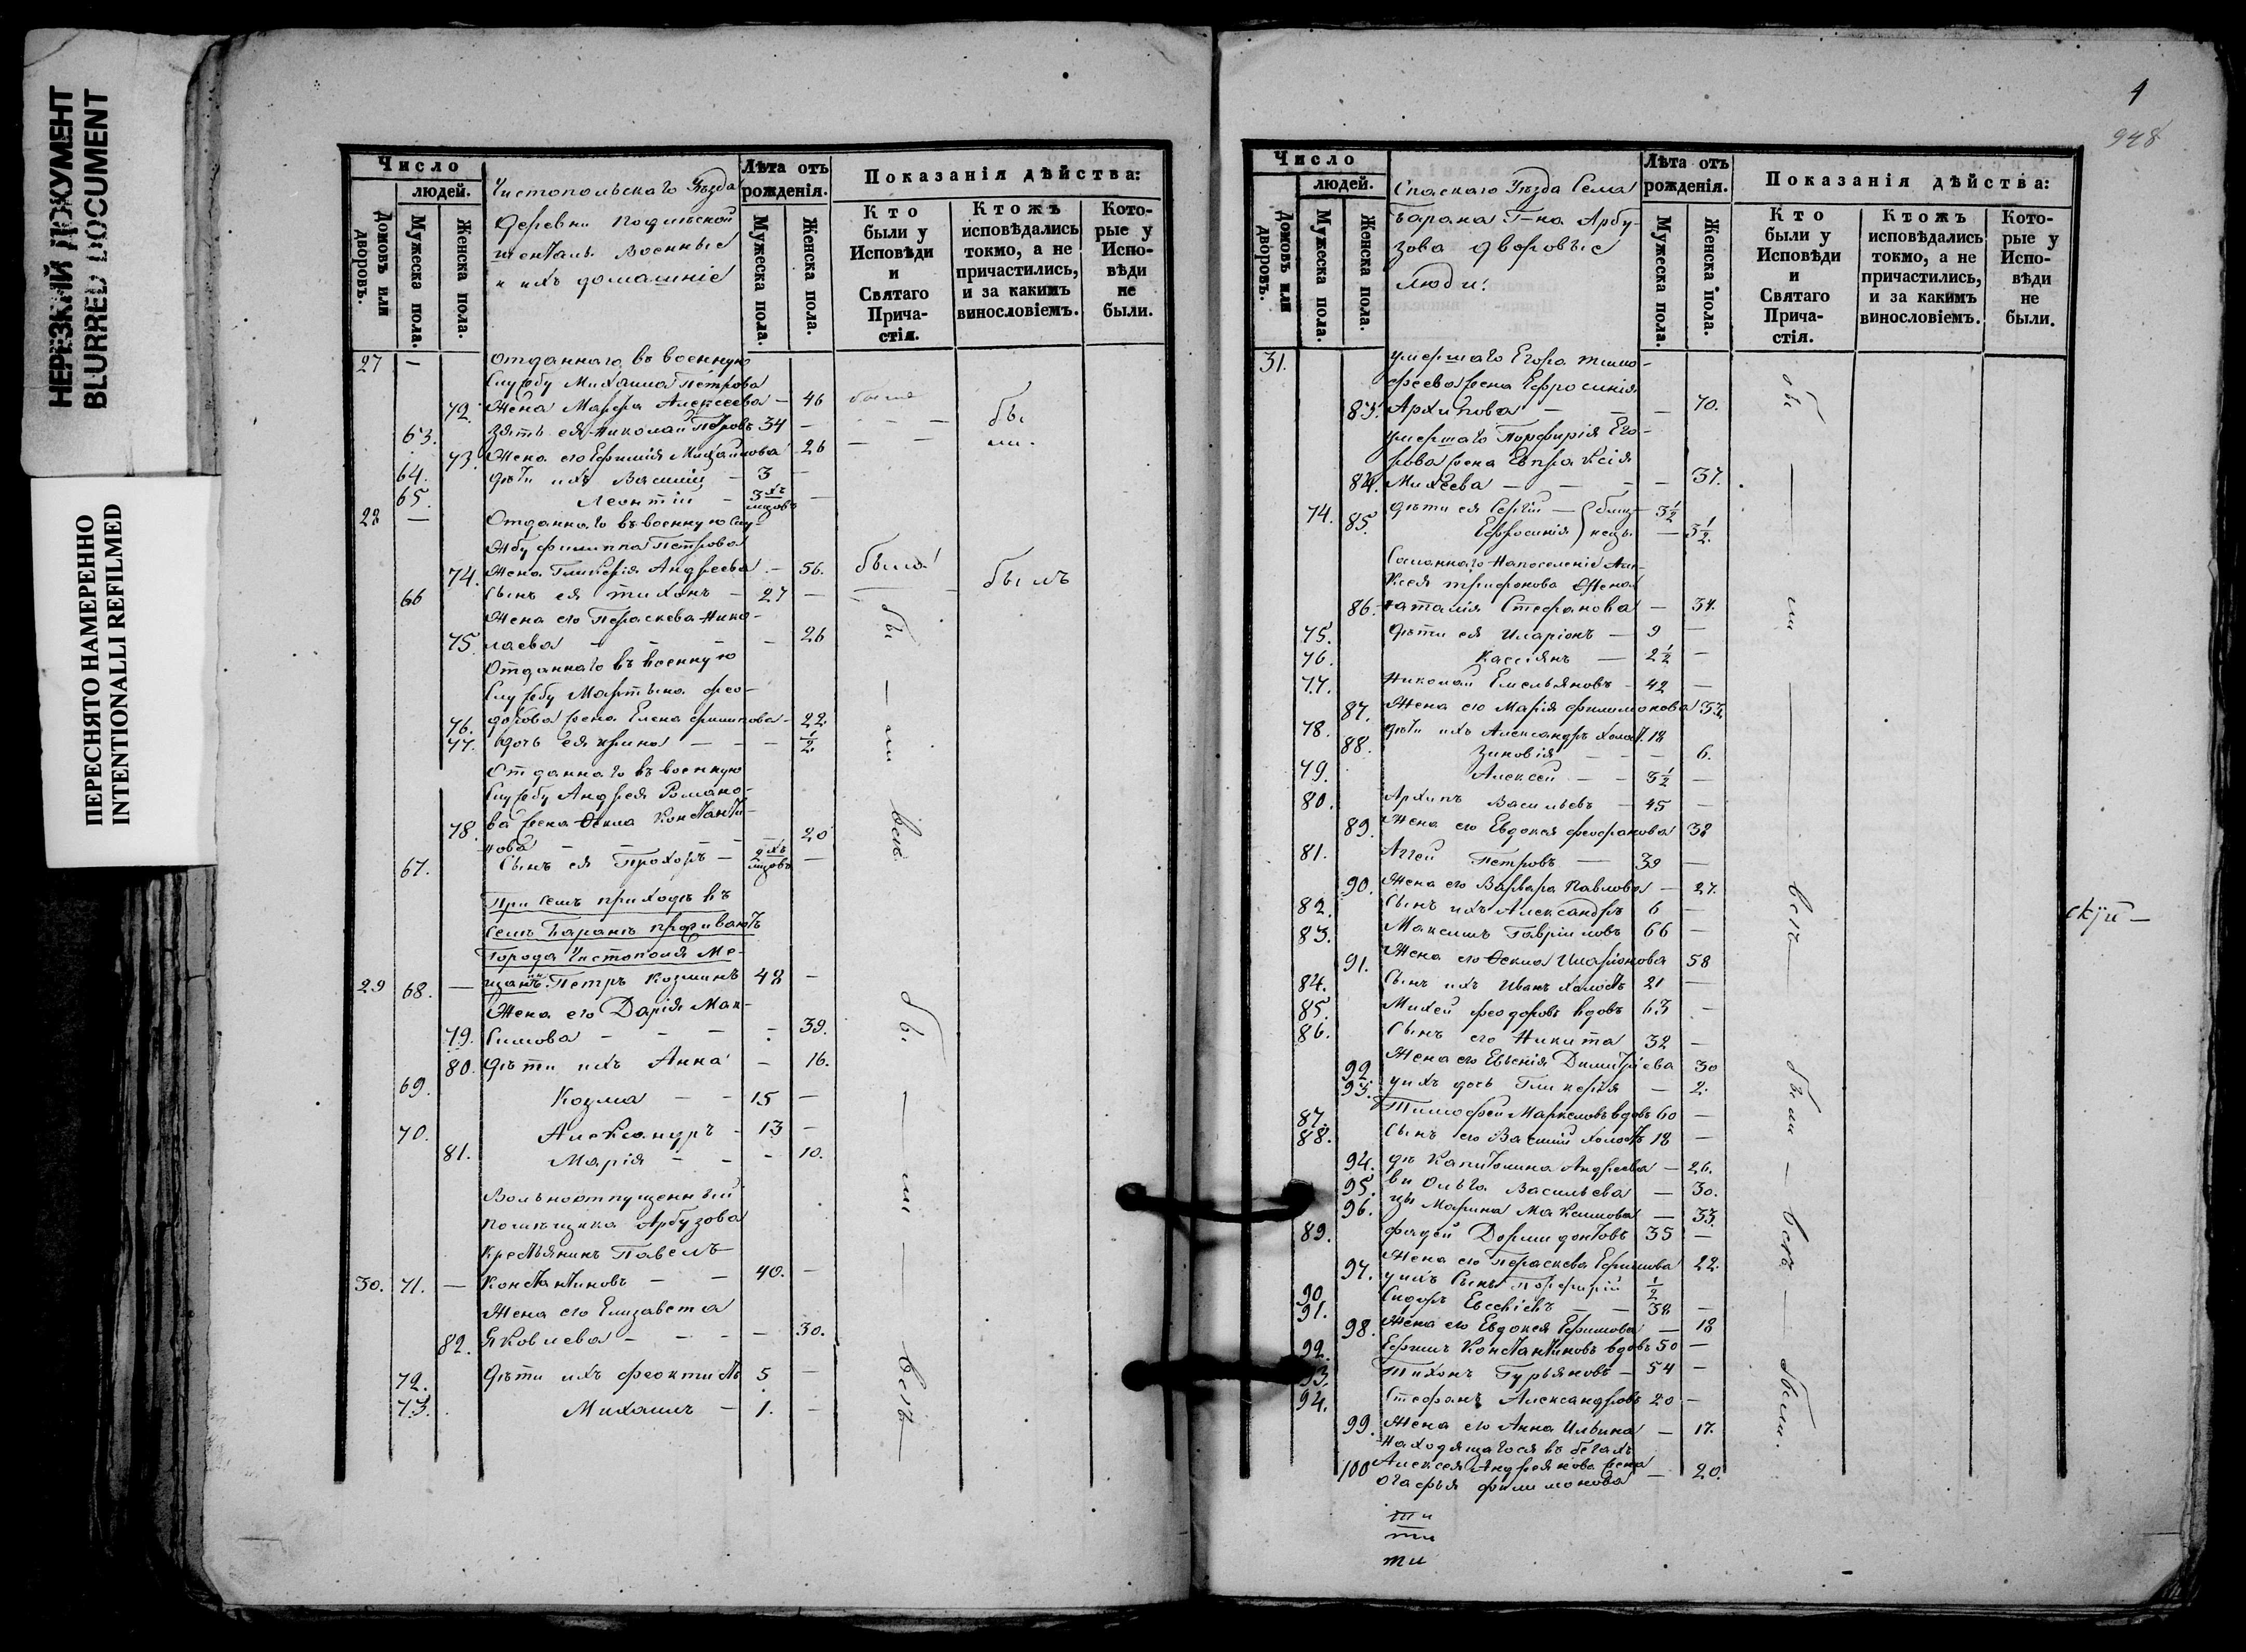 НЕРЕЗКИЙ ДОКУМЕНТ
BLURRED DOCUMENT
ПЕРЕСНЯТО НАМЕРЕННО
INTENTIONALLI REFILMED
Число
людей.
Домовъ или дворовъ.
Мужеска пола.
Женска пола.
Чистопольскаго Уѣзда
Деревни
Военные
и ихъ домашніе
Лѣта отъ рожденія.
Мужеска пола.
Женска пола.
Показанія дѣйства:
Кто были у Исповѣди и Святаго Прича-стія.
Ктожъ исповѣдались токмо, а не причастились, и за какимъ винословіемъ.
Кото-рые у Испо-вѣди не были.
27 — Отданнаго въ военную
Службу Михаила Петрова
72. Жена Марфа Алексеева — 46 была
63. зять ея Николай Петровъ 34 — бы
73. Жена его Ефимія Михайлова 26 — — ли.
64. дѣти ихъ Василій — 3 —
65. Леонтій — 3хъ мцовъ —
28 — Отданнаго въ военную слу-
жбу Филиппа Петрова
74. Жена Гликерія Андреева — 56. была
66 Сынъ ея Тихонъ — 27 — былъ
Жена его Параскева Нико-
75. лаева — — — 26
Отданнаго въ военную
Службу Мартына Фео-
76. дорова жена Елена Филипова — 22.
77. дочь ея Ирина — — — 1/2
Отданнаго въ военную
Службу Андрея Романо-
78. ва жена Фекла Константи-
нова — — — 20
67. Сынъ ея Прохоръ — 2хъ мцовъ —
бы — ли всѣ.
При семъ приходѣ въ
Селѣ Баранѣ проживаютъ
Города Чистополя Ме-
29 68. — щанинъ Петръ Козминъ 48 —
Жена его Дарія Мак-
79. симова — — — 39.
80. Дѣти ихъ Анна — 16.
69. Козма — — 15 —
70. Александръ — 13 —
81. Марія — — — 10.
Вольноотпущенный
помѣщика Арбузова
Крестьянинъ Павелъ
30. 71. — Константиновъ — — 40. —
Жена его Елизавета
82. Яковлева — — — — 30.
72. Дѣти ихъ Феоктистъ 5 —
73. Михаилъ — 1. —
бы. — ли — всѣ —
1
948
Число
людей.
Домовъ или дворовъ.
Мужеска пола.
Женска пола.
Спаскаго Уѣзда Села
Барана Г-на Арбу-
зова дворовые
люди:
Лѣта отъ рожденія.
Мужеска пола.
Женска пола.
Показанія дѣйства:
Кто были у Исповѣди и Святаго Прича-стія.
Ктожъ исповѣдались токмо, а не причастились, и за какимъ винословіемъ.
Кото-рые у Испо-вѣди не были.
31. умершаго Егора Тимо-
феева жена Ефросинія
83. Архипова — — — 70.
умершаго Порфирія Его-
рова жена Евпраксія
84. Михеева — — — 37.
74. дѣти ея Сергій — близ- 3 1/2
85. Ефросинія нецы — 3 1/2.
Сосланнаго На поселеніе Але-
ксея Трифонова Жена
86. Наталія Стефанова — 34.
75. Дѣти ея Иларіонъ — 9 —
76. Кассіянъ — 2 1/2 —
77. Николай Емельяновъ — 42 —
87. Жена его Марія Филимонова 33.
78. дѣти ихъ Александръ холост. 18
88. Зиновія — — — 6.
79. Алексей — — 3 1/2 —
80. Архипъ Васильевъ — 45 —
89. Жена его Евдокея Феофанова 38
81. Аггей Петровъ — 39 —
90. Жена его Варвара Павлова — 27.
82. Сынъ ихъ Александръ 6 —
83. Максимъ Гавриловъ 66 —
91. Жена его Фекла Иларіонова 58
84. Сынъ ихъ Иванъ холостъ 21 —
85. Михей Феодоровъ вдовъ 63 —
86. Сынъ его Никита 32 —
92. Жена его Евгенія Димитріева 30
93. у ихъ дочь Гликерія — 2.
87. Тимофей Маркеловъ вдовъ 60 —
88. Сынъ его Василій холостъ 18 —
94. дѣ Капитолина Андреева — 26.
95. ви Ольга Васильева — 30.
96. цы Марина Максимова — 33.
89. Фадей Дормидонтовъ 35 —
97. Жена его Параскева Ефимова 22.
90 у ихъ Сынъ Порфирій 1/2
91. Сидоръ Евсевіевъ — — 38 —
98. Жена его Евдокея Ефимова — 18
92. Ефимъ Константиновъ вдовъ 50 —
93. Тихонъ Гурьяновъ — 54 —
94. Стефанъ Александровъ 20 —
99. Жена его Анна Ильина — 17.
Находящагося въ бегахъ
100 Алексея Андреянова жена
Агафья Филимонова — 20.
бы — ли — всѣ — были — всѣ — были.
ти
ти